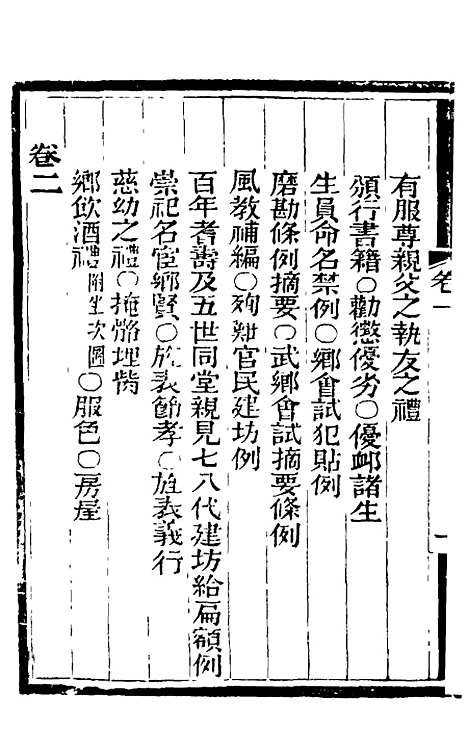 卷一
一
有服尊親父之執友之禮
頒行書籍○勸懲優劣○優邺諸生
生員命名禁例○鄉會試犯貼例
磨勘條例摘要○武鄉會試摘要條例
風教補編○殉難官民建坊例
百年耆壽及五世同堂親見七八代建坊給扁額例
崇祀名宦鄉賢○旌表節孝○旌表義行
慈幼之禮○掩骼埋胔
鄉飲酒禮附坐次圖○服色○房屋
卷二